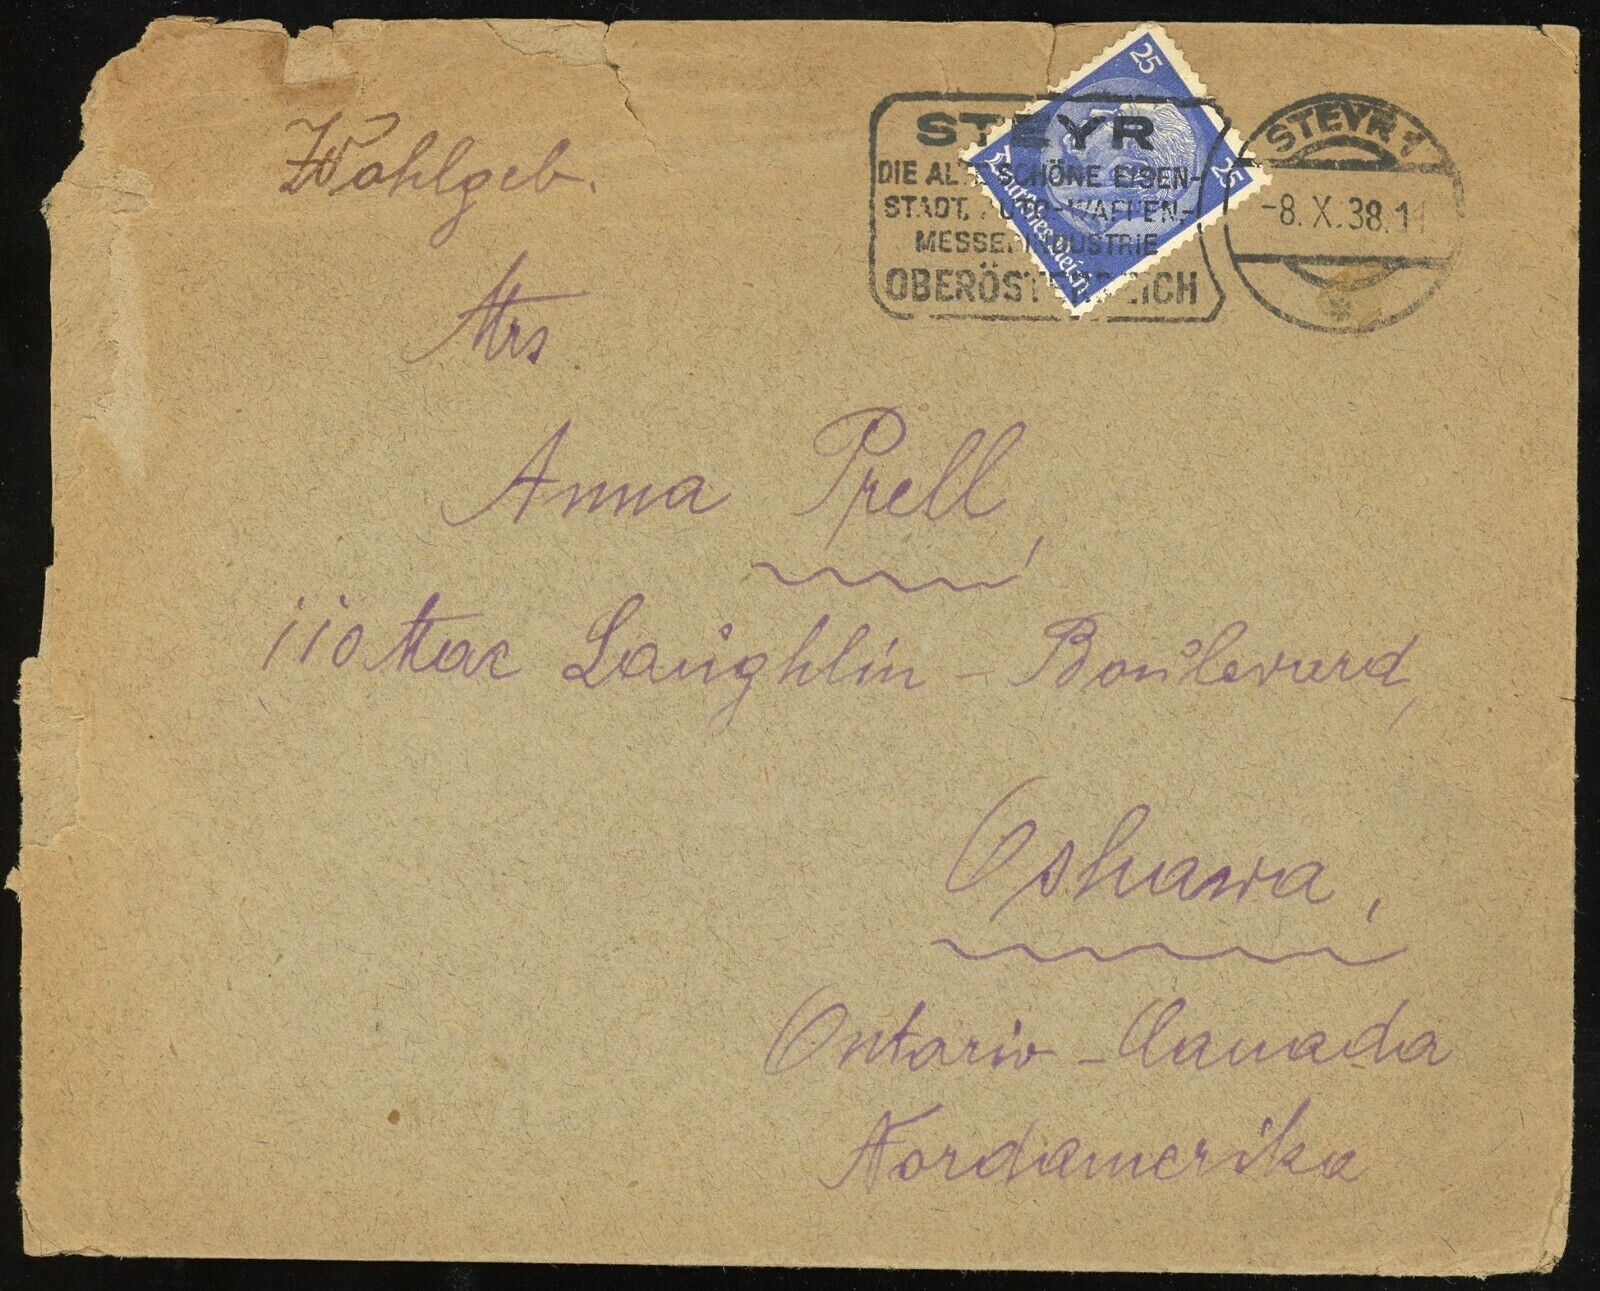 Wohlgeb.
Mrs.
Anna Prell,
110 Mac Laughlin - Boulevard,
Oshawa,
Ontario - Canada
Nordamerika
25
25
Deutsches Reich
STEYR
DIE ALTE SCHÖNE EISEN-
STADT, AUTO-WAFFEN-
MESSERINDUSTRIE
OBERÖSTERREICH
STEYR 1
-8.X.38.
*